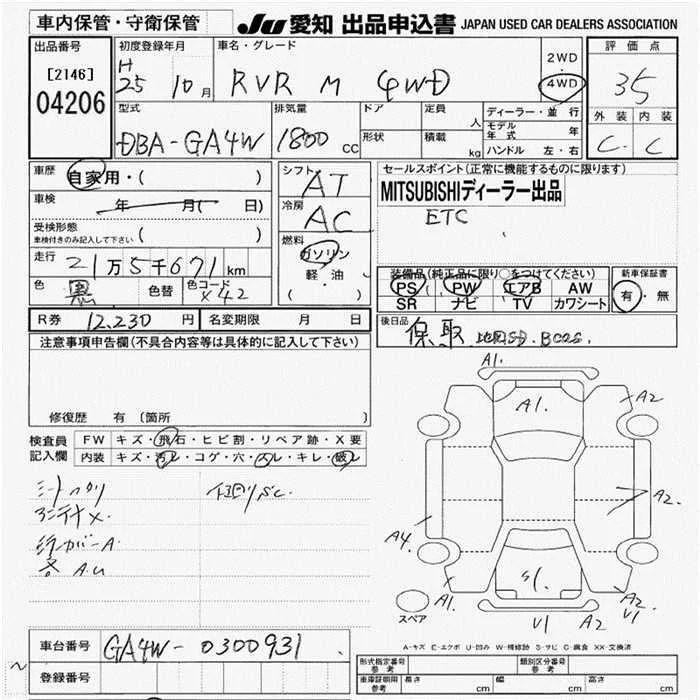 車内保管・守衛保管
JU 愛知 出品申込書 JAPAN USED CAR DEALERS ASSOCIATION
出品番号
[2146]
04206
初度登録年月
H
25 10月
車名・グレード
RVR M 4WD
2WD
4WD
評価点
35
外装 内装
C C
型式
DBA-GA4W
排気量
1800 cc
ドア
形状
定員 人
積載 kg
ディーラー・並行
モデル年式 年
ハンドル 左・右
車歴
自家用・( )
車検
年 月( 日)
受検形態
車検付きのみ記入して下さい ( )
走行
21万5千671km
色
黒
色替
色コード
X42
シフト
AT
冷房
AC
燃料
ガソリン
軽・油
( )
セールスポイント(正常に機能するものに限ります)
MITSUBISHIディーラー出品
ETC
装備品(純正品に限り○をつけてください)
PS PW エアB AW
SR ナビ TV カワシート
新車保証書
有・無
R券 12,230 円
名変期限 月 日
後日品
保 取
注意事項申告欄(不具合内容等は具体的に記入して下さい)
修復歴 有 〔箇所
検査員
記入欄
FW キズ・飛石・ヒビ割・リペア跡・X要
内装 キズ・汚レ・コゲ・穴・スレ・キレ・破レ
A1.
A1.
A2
A2
A4.
S1.
A1
A2
V1
V1 A2
スペア
A-キズ E-エクボ U-凹み W-補修跡 S-サビ C-腐食 XX-交換済
車台番号 GA4W-0300931
登録番号
形式指定番号
参考
類別区分番号
参考
車庫証明用
参考
長さ cm
幅 cm
高さ cm